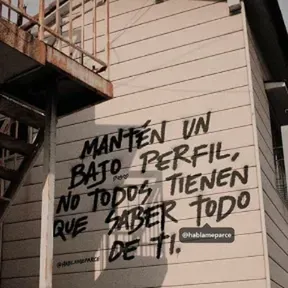 MANTÉN UN
BAJO PERFIL,
NO TODOS TIENEN
QUE SABER TODO
DE TI.
@hablameparce
@HABLAMEPARCE